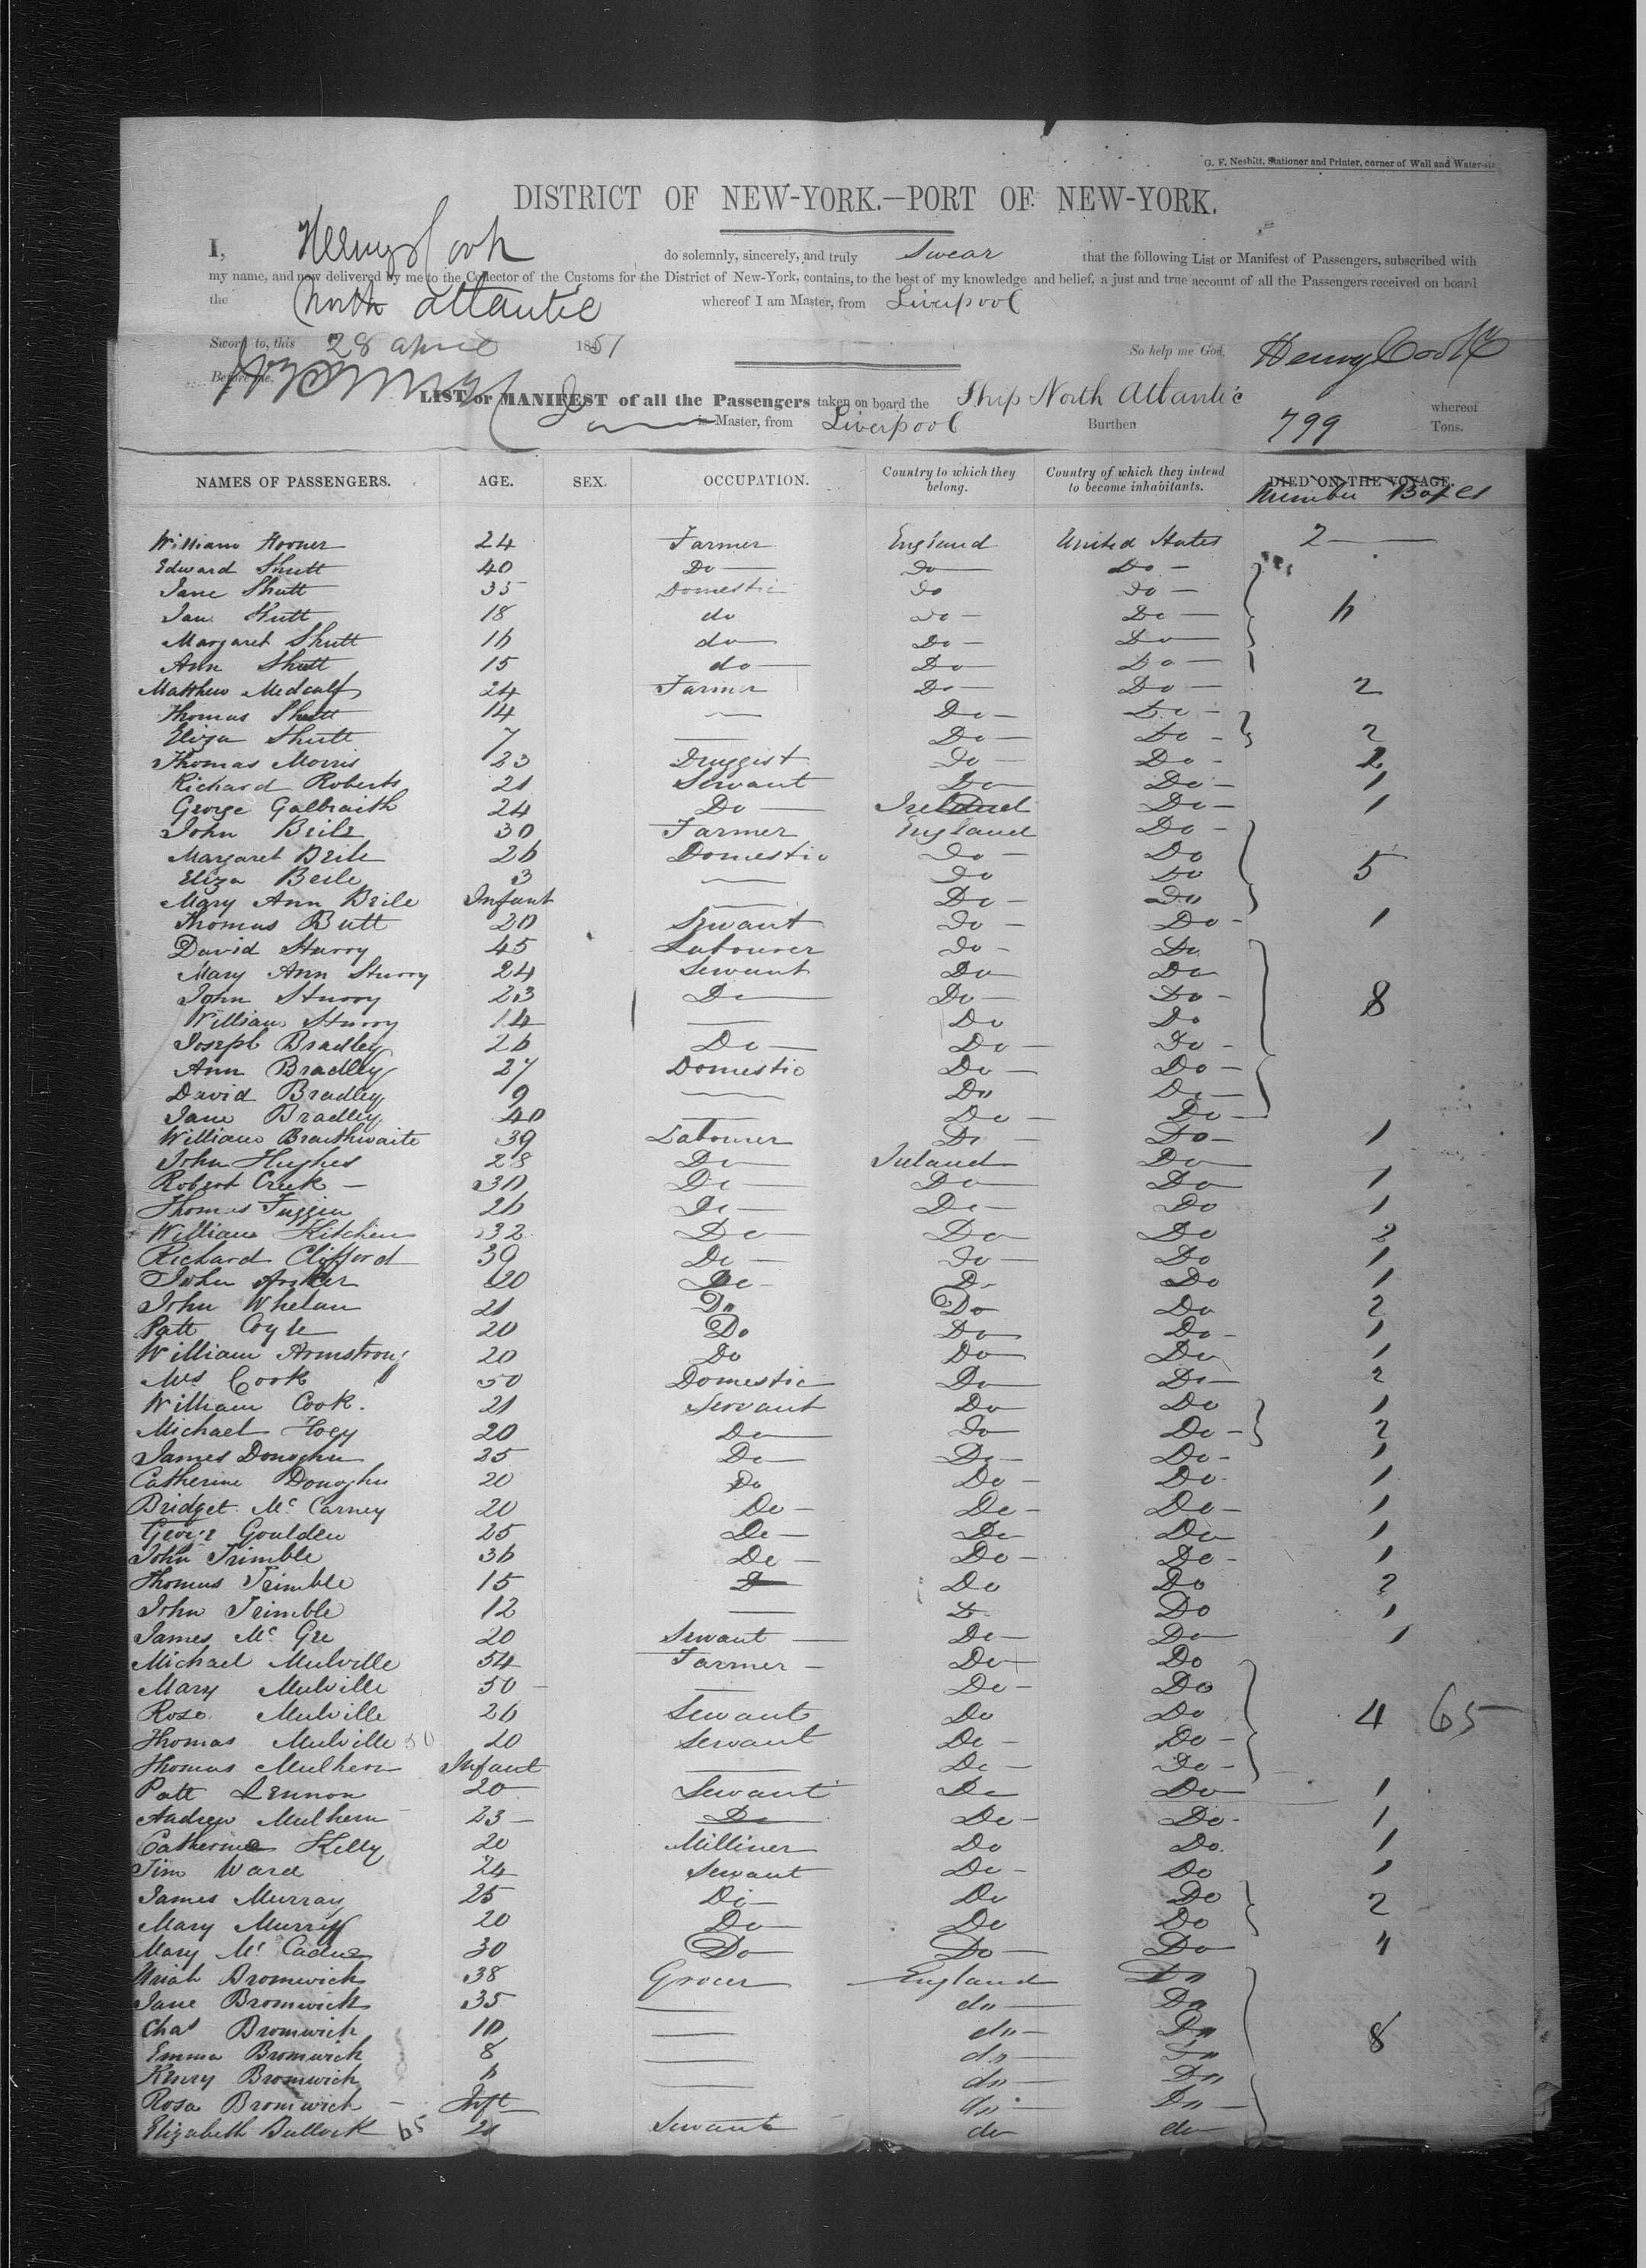 G. F. Nesbitt, Stationer and Printer, corner of Wall and Water-sts.
DISTRICT OF NEW-YORK.—PORT OF NEW-YORK.
I, Henry Cook do solemnly, sincerely, and truly Swear that the following List or Manifest of Passengers, subscribed with
my name, and now delivered by me to the Collector of the Customs for the District of New-York, contains, to the best of my knowledge and belief, a just and true account of all the Passengers received on board
the North Atlantic whereof I am Master, from Liverpool
Sworn to, this 28 April 1851 So help me God. Henry Cook
Before me,
LIST or MANIFEST of all the Passengers taken on board the Ship North Atlantic whereof
is Master, from Liverpool Burthen 799 Tons.
NAMES OF PASSENGERS. AGE. SEX. OCCUPATION. Country to which they belong. Country of which they intend to become inhabitants. DIED ON THE VOYAGE.
Number Boxes
William Hooner 24 Farmer England United States 2
Edward Shutt 40 Do Do Do
Jane Shutt 35 Domestic Do Do
Jane Shutt 18 do Do Do 6
Margaret Shutt 16 do Do Do
Ann Shutt 15 do Do Do
Matthew Medcalf 24 Farmer Do Do 2
Thomas Shutt 14 — Do Do
Eliza Shutt 7 — Do Do 2
Thomas Morris 23 Druggist Do Do 2
Richard Roberts 21 Servant Do Do 1
George Galbraith 24 Do Ireland Do 1
John Beile 30 Farmer England Do
Margaret Beile 26 Domestic Do Do 5
Eliza Beile 3 — Do Do
Mary Ann Beile Infant — Do Do
Thomas Butt 20 Servant Do Do 1
David Sturry 45 Labourer Do Do
Mary Ann Sturry 24 Servant Do Do
John Sturry 23 Do Do Do 8
William Sturry 14 — Do Do
Joseph Bradley 26 Do Do Do
Ann Bradley 27 Domestic Do Do
David Bradley 9 — Do Do
Jane Bradley 40 — Do Do
William Braithwaite 39 Labourer Do Do 1
John Hughes 28 Do Ireland Do
Robert Creek 30 Do Do Do 1
Thomas 26 Do Do Do 1
William Kitchen 32 Do Do Do 2
Richard Clifford 39 Do Do Do 1
John 20 Do Do Do 1
John Whelan 21 Do Do Do 2
Patt Coyle 20 Do Do Do 1
William Armstrong 20 Do Do Do 1
Mrs Cook 50 Domestic Do Do 2
William Cook. 21 Servant Do Do 1
Michael Hoey 20 Do Do Do 2
James Donoghu 25 Do Do Do 1
Catherine Donoghu 20 Do Do Do 1
Bridget Mc Carney 20 Do Do Do 1
George Goulden 25 Do Do Do 1
John Trimble 36 Do Do Do 1
Thomas Trimble 15 D Do Do 2
John Trimble 12 — Do Do 1
James Mc Gee 20 Servant Do Do 1
Michael Mulville 54 Farmer Do Do
Mary Mulville 50 — Do Do
Rose Mulville 26 Servant Do Do 4 65
Thomas Mulville 50 20 Servant Do Do
Thomas Mulhern Infant — Do Do
Patt Lennon 20 Servant Do Do 1
Andrew Mulhern 23 Do Do Do 1
Catherine Kelly 20 Milliner Do Do 1
Jim Ward 24 Servant Do Do 1
James Murray 25 Do Do Do 2
Mary Murray 20 Do Do Do
Mary Mc 30 Do Do Do 4
Uriah Bromwich 38 Grocer England Do
Jane Bromwich 35 — do Do
Chas Bromwich 10 — do Do 8
Emma Bromwich 8 — do Do
Henry Bromwich 6 — do Do
Rosa Bromwich Inft do Do
Elizabeth Bullock 65 21 Servant do do